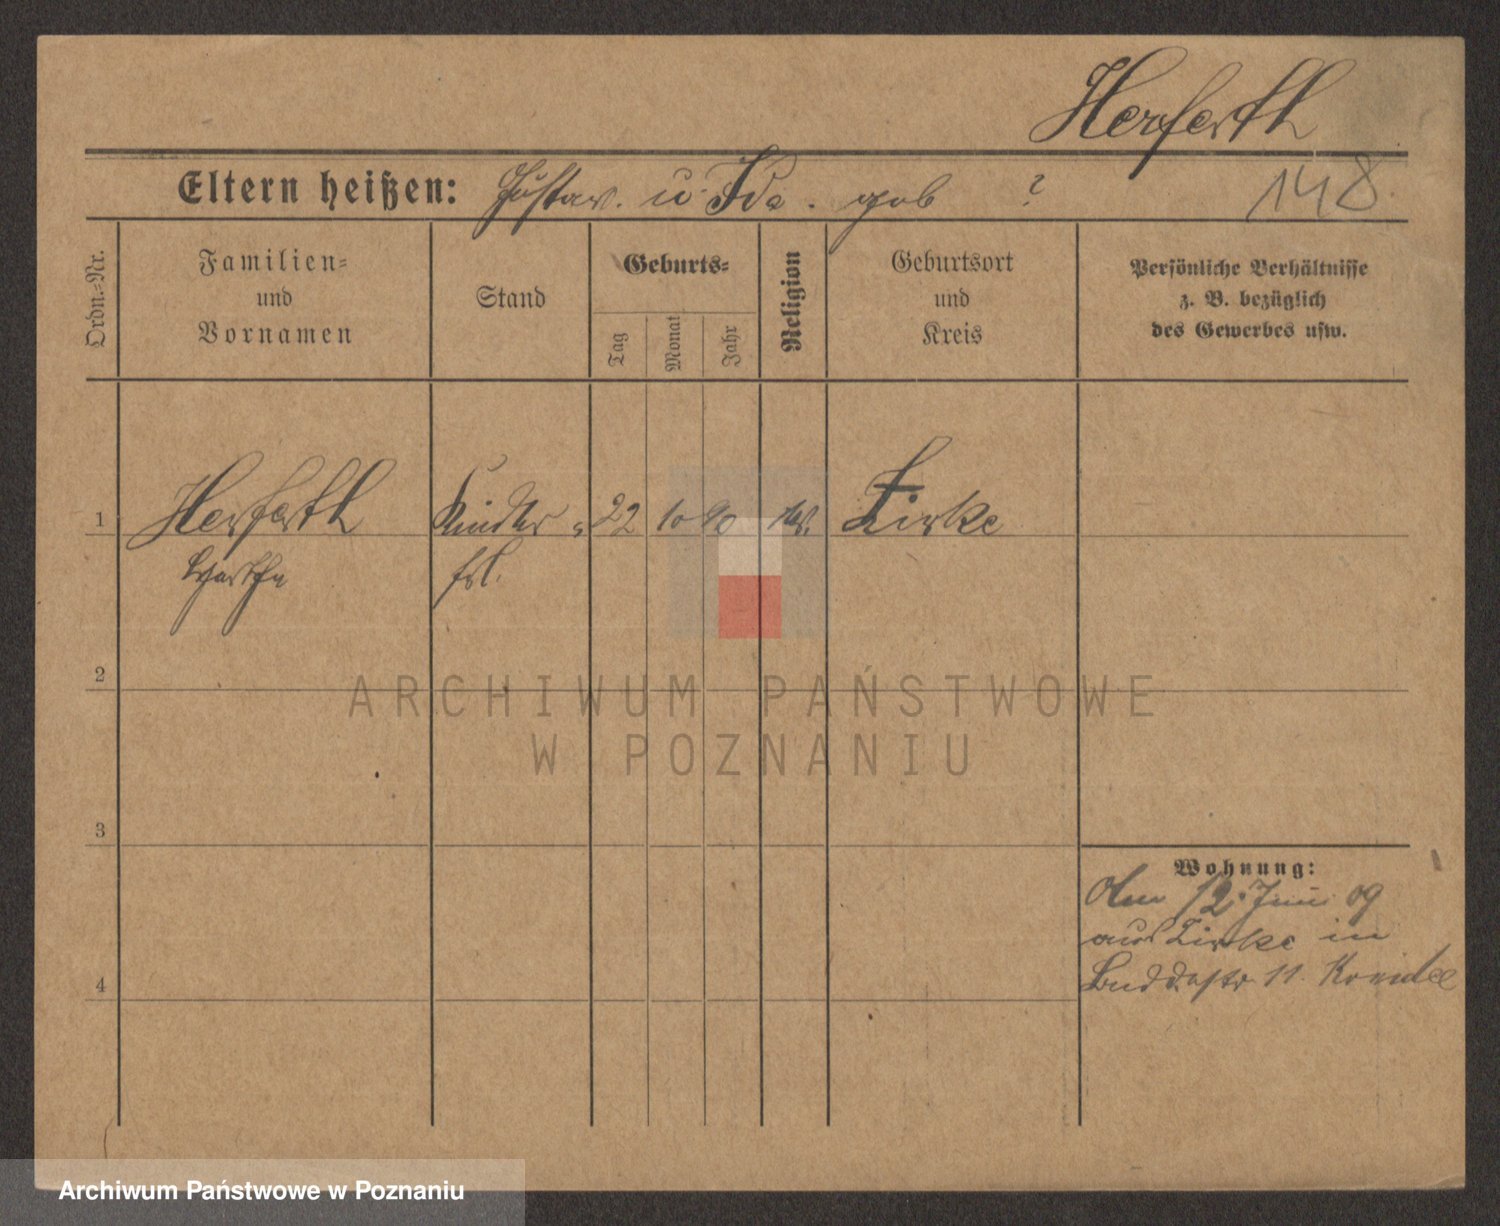 Herferth
Eltern heißen: Gustav. u. Ida. geb ?
148.
Ordn.-Nr.
Familien-
und
Vornamen
Stand
Geburts-
Tag
Monat
Jahr
Religion
Geburtsort
und
Kreis
Persönliche Verhältnisse
z. B. bezüglich
des Gewerbes usw.
1 Herferth Kinder- 22 10 90 ev. Zirke
frl.
2
3
4
Wohnung:
12. Juni 09
aus Zirke in
Buddestr 11.
ARCHIWUM PAŃSTWOWE
W POZNANIU
Archiwum Państwowe w Poznaniu